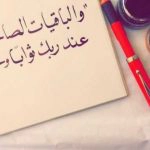 "والباقيات الصا
عند ربك ثوابا و